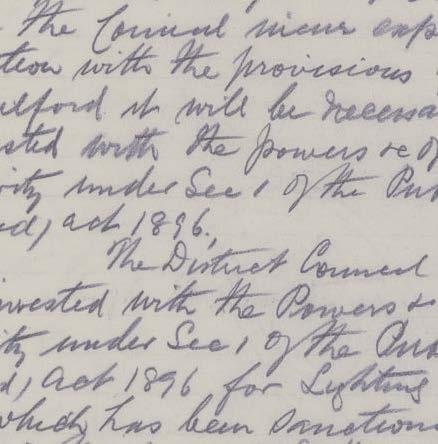 the Council incur exp
ction with the provisions
ulford it will be necessa
sted with the powers &c of
rity under Sec 1 of the Pub
ed, act 1896,
The District Council
invested with the Powers &
ity under Sec 1 of the Pub
d, act 1896 for Lighting
which has been sanction